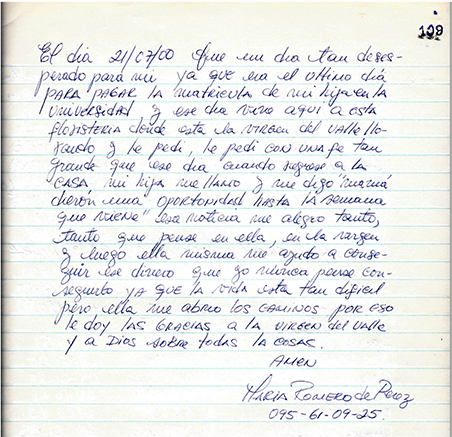 109
El dia 21/07/00 fue un dia tan deses-
perado para mi ya que era el ultimo dia
PARA PAGAR la matricula de mi hija en la
universidad y ese dia vine aqui a esta
floristeria donde esta la virgen del valle llo-
rando y le pedi, le pedi con una fe tan
grande que ese dia cuando regrese a la
CASA mi hija me llamo y me digo "mamá
dieron una oportunidad hasta la semana
que viene" esa noticia me alegro tanto,
tanto que pense en ella, en la virgen
y luego ella misma me ayudo a conse-
guir ese dinero que yo nunca pense con-
seguirlo ya que la vida esta tan dificil
pero ella me abrio los caminos por eso
le doy las gracias a la virgen del valle
y a Dios sobre todas la cosas.
AMEN
Maria Romero de Perez
095-61-09-25.